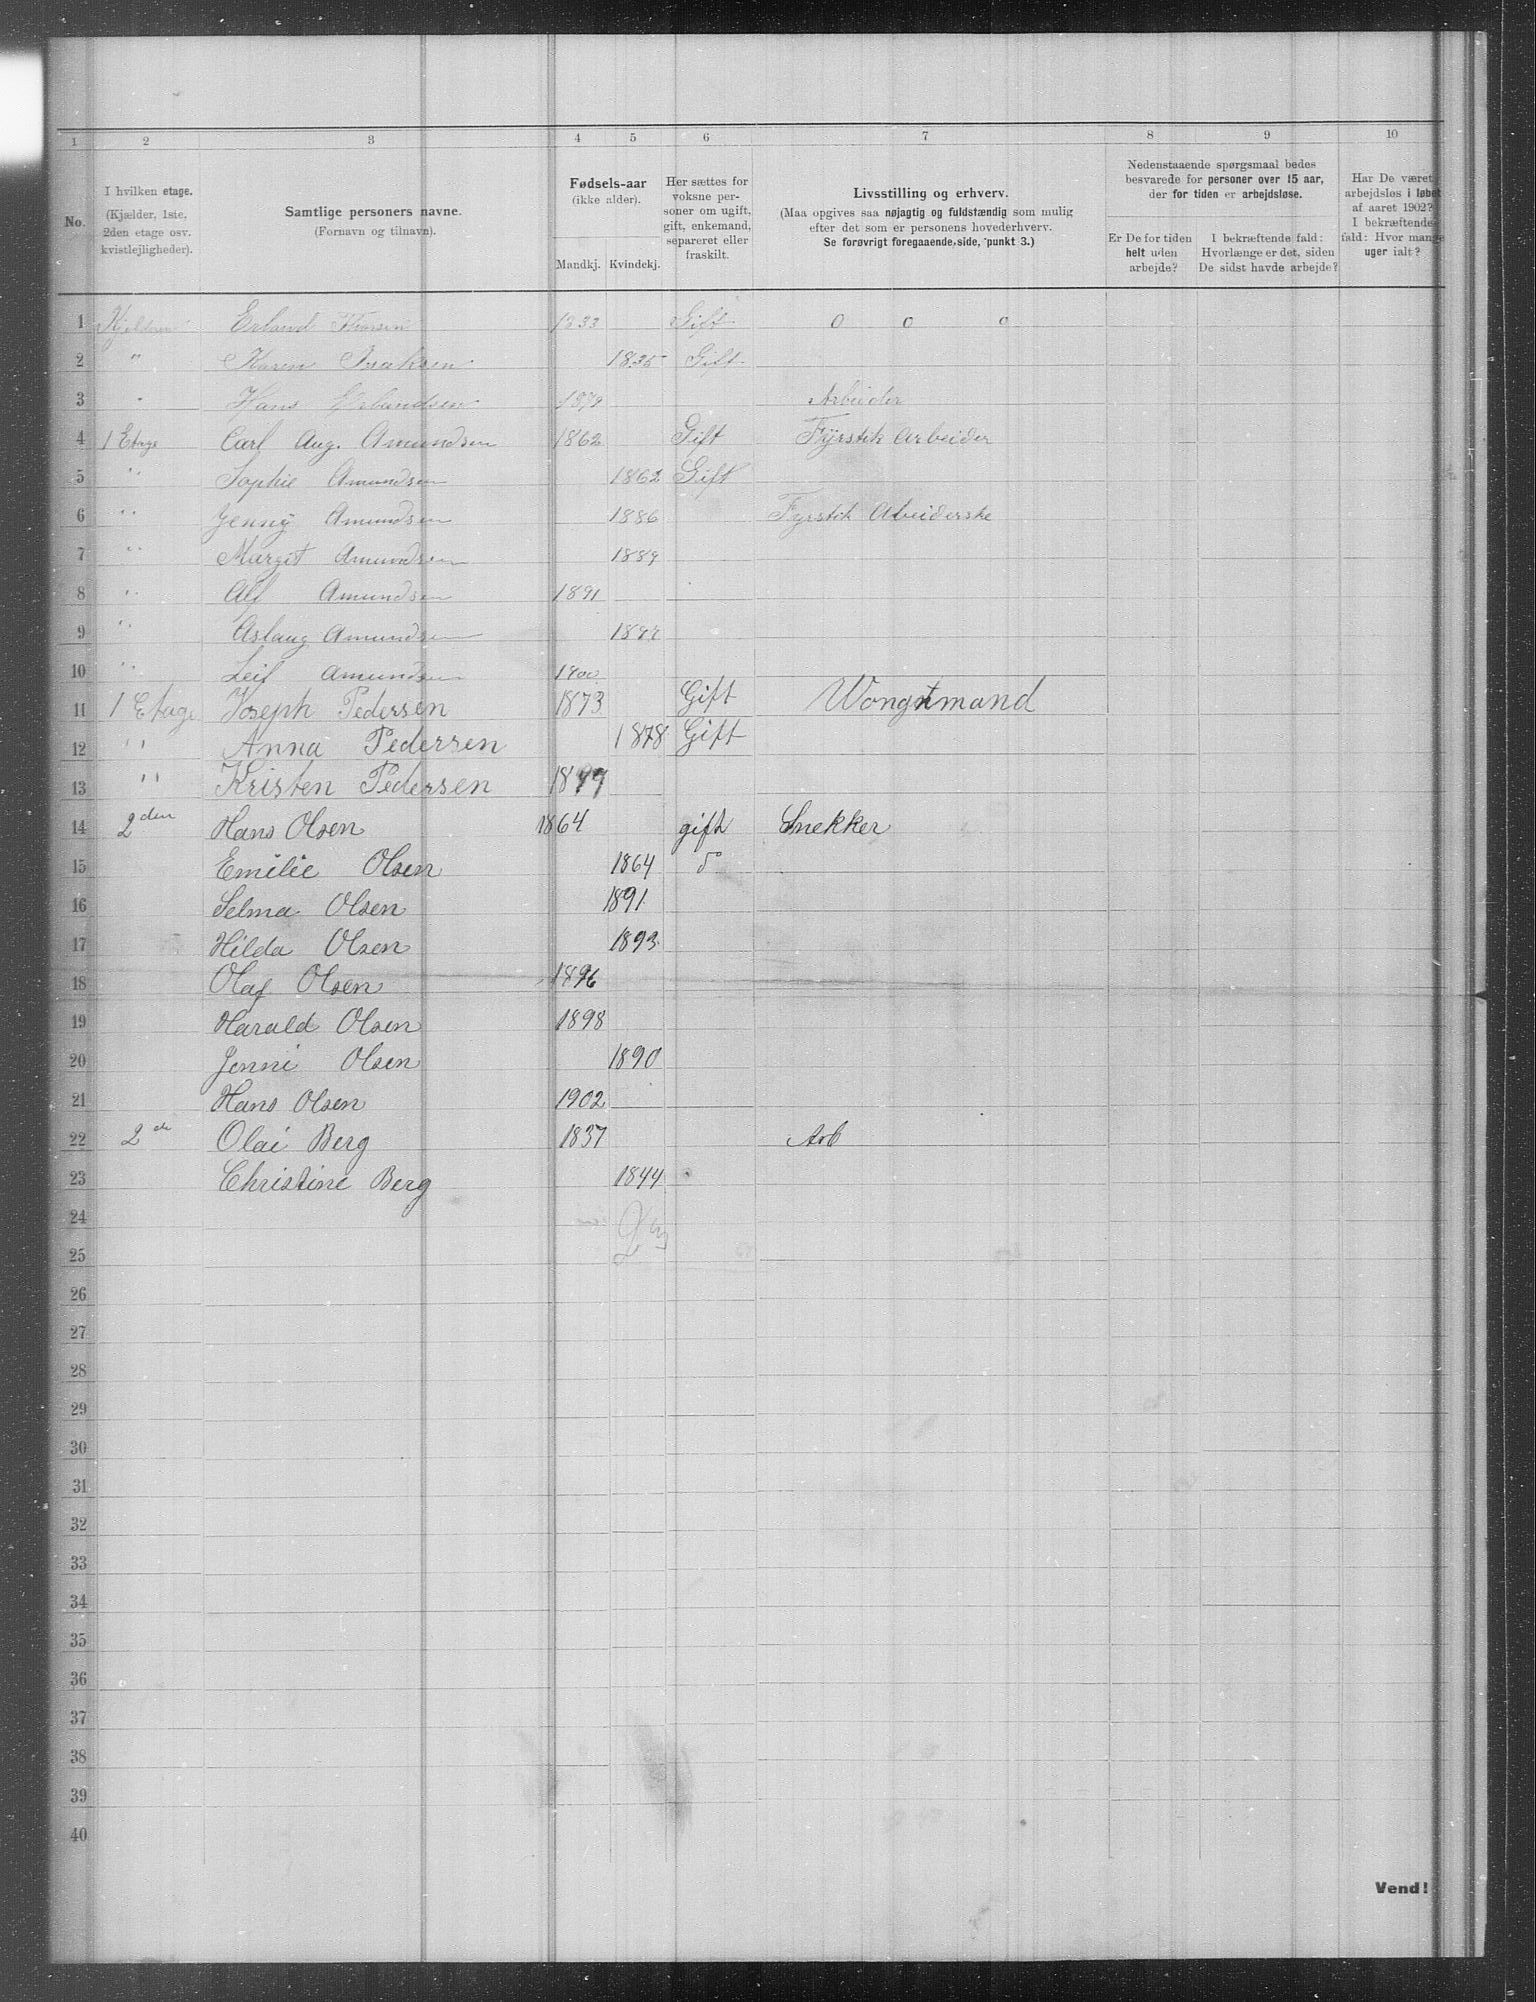 1 2 3 4 5 6 7 8 9 10
No.
I hvilken etage.
(Kjælder, 1ste, 2den etage osv. kvistlejligheder).
Samtlige personers navne.
(Fornavn og tilnavn).
Fødsels-aar
(ikke alder).
Mandkj. Kvindekj.
Her sættes for voksne personer om ugift, gift, enkemand, separeret eller fraskilt.
Livsstilling og erhverv.
(Maa opgives saa nøjagtig og fuldstændig som mulig
efter det som er personens hovederhverv.
Se forøvrigt foregaaende side, punkt 3.)
Nedenstaaende spørgsmaal bedes
besvarede for personer over 15 aar,
der for tiden er arbejdsløse.
Er De for tiden helt uden arbejde?
I bekræftende fald: Hvorlænge er det, siden De sidst havde arbejde?
Har De været arbejdsløs i løbet af aaret 1902? I bekræftende fald: Hvor mange uger ialt?
1 Kjelderen Erland 1833 Gift o o o
2 " Karen Isaksen 1835 Gift
3 " Hans Erlandsen Arbeider
4 1 Etage Carl Aug. Amundsen 1862 Gift Fyrstik Arbeider
5 " Sophie Amundsen 1862 Gift
6 " Jenny Amundsen 1886 Fyrstik Abeiderske
7 " Margit Amundsen 1889
8 " Alf Amundsen 1891
9 " Aslaug Amundsen
10 " Leif Amundsen 1900
11 1 Etage Joseph Pedersen 1873 Gift Wongnmand
12 " Anna Pedersen 1878 Gift
13 " Kristen Pedersen
14 2den Hans Olsen 1864 gift Snekker
15 Emilie Olsen 1864 do
16 Selma Olsen 1891
17 Hilda Olsen 1893
18 Olaf Olsen 1896
19 Harald Olsen 1898
20 Jenni Olsen 1890
21 Hans Olsen 1902
22 2de Olai Berg 1837 Arb
23 Christine Berg 1844
24
25
26
27
28
29
30
31
32
33
34
35
36
37
38
39
40
Vend!